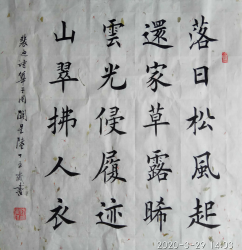 落日松風起
還家草露晞
雲光侵履迹
山翠拂人衣
裴迪詩華子岡
2020-3-29 14:03